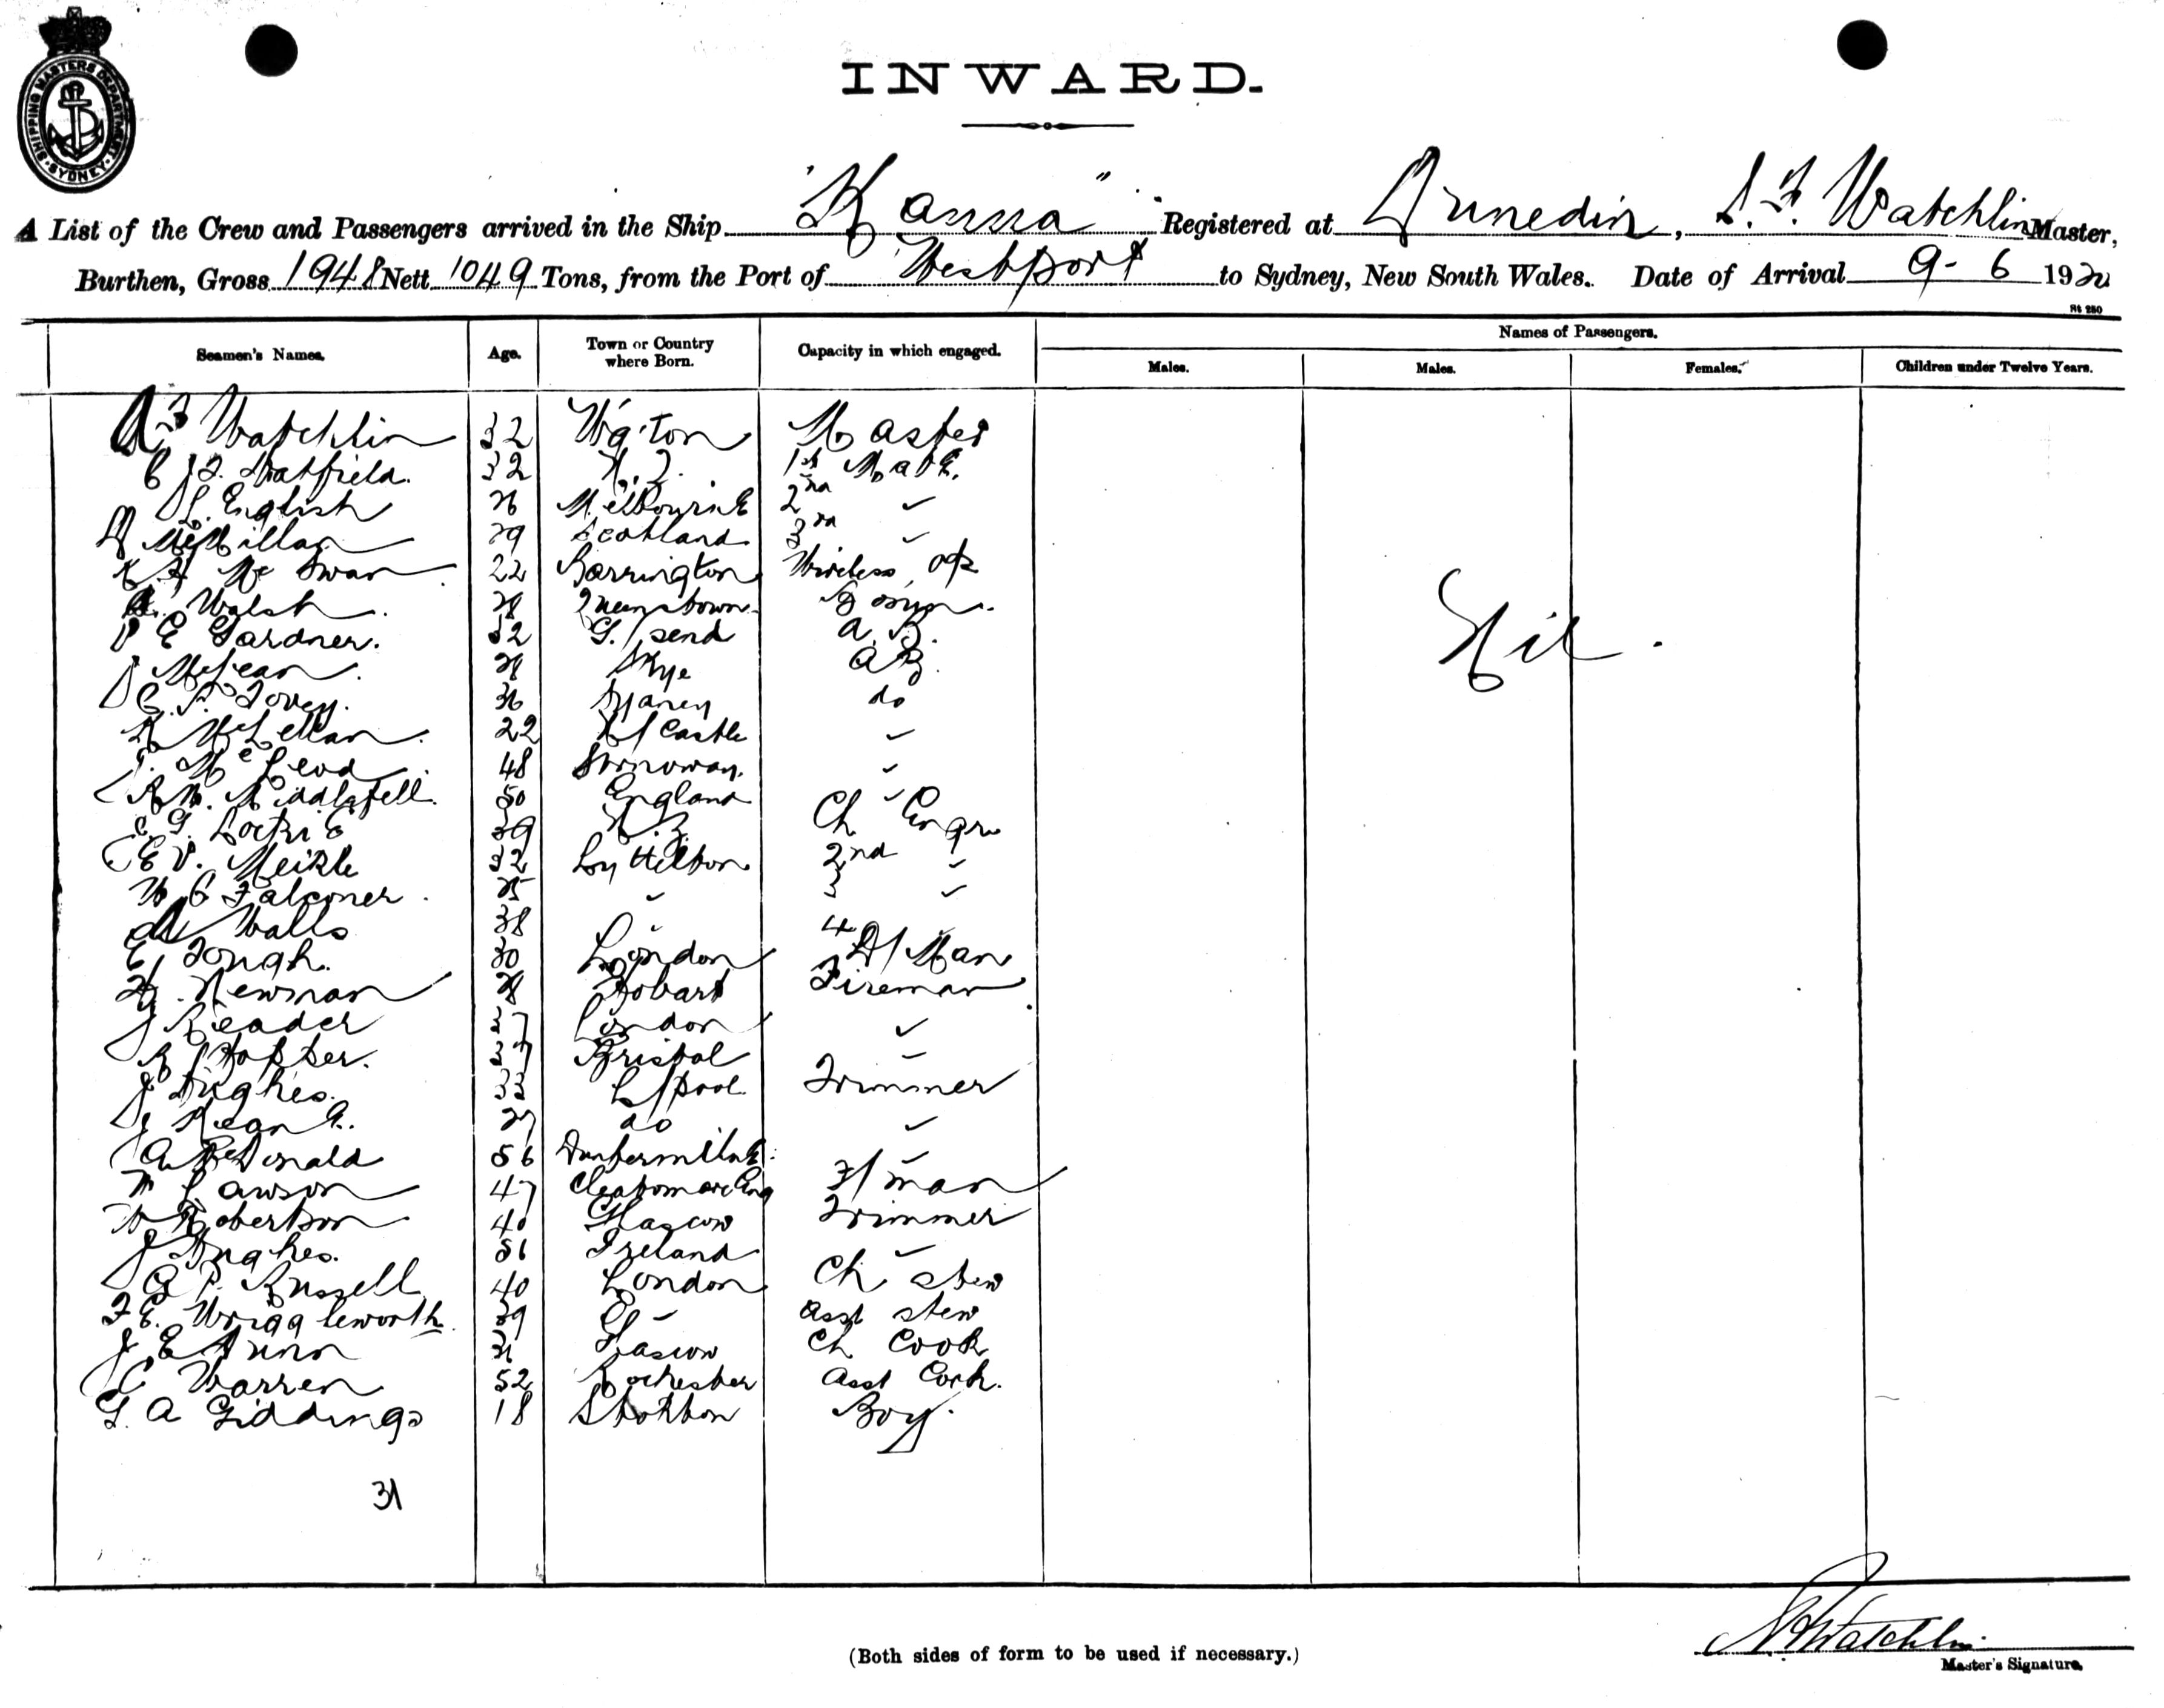 SHIPPING MASTERS DEPARTMENT. SYDNEY.
INWARD.
A List of the Crew and Passengers arrived in the Ship "Kanna" Registered at Dunedin, Watchlin Master,
Burthen, Gross 1948 Nett 1049 Tons, from the Port of Westport to Sydney, New South Wales. Date of Arrival 9-6 192
Names of Passengers.
Seamen's Names. Age. Town or Country where Born. Capacity in which engaged. Males. Males. Females. Children under Twelve Years.
Watchlin 32 Master
Hatfield. 32 N.Z. 1st Mate.
English 26 Melbourne 2nd "
McMillan 29 Scotland 3rd "
McSwan 22 Barrington Wireless op
Walsh. 28 Queenstown
E Gardner. 52 G/send A.B.
McLean. 28 Skye A.B.
Tovey. 36 Sydney do
McLellan. 22 N/Castle "
McLeod 48 Stornoway. "
Middlefell. 50 England "
39 N.Z. Ch Engr
E V. Meikle 32 Lyttelton 2nd "
W C Falconer. 25 " 3 "
Walls 38 " 4 "
Tough. 30 London D/Man
Newman 28 Hobart Fireman
J Reader 27 London "
Hopper. Bristol "
J Hughes. L/pool Trimmer
J 27 do "
A McDonald 56 Dunfermline "
Lawson 47 F/man
Robertson 40 Glascow Trimmer
J Hughes. 51 Ireland "
Russell 40 London Ch Stew
F E. Wrigglesworth 39 " Asst Stew
J E Glascow Ch Cook
C Warren 52 Rochester Asst Cook.
G. A Giddings 18 Boy.
Nil.
31
(Both sides of form to be used if necessary.)
Watchlin
Master's Signature.